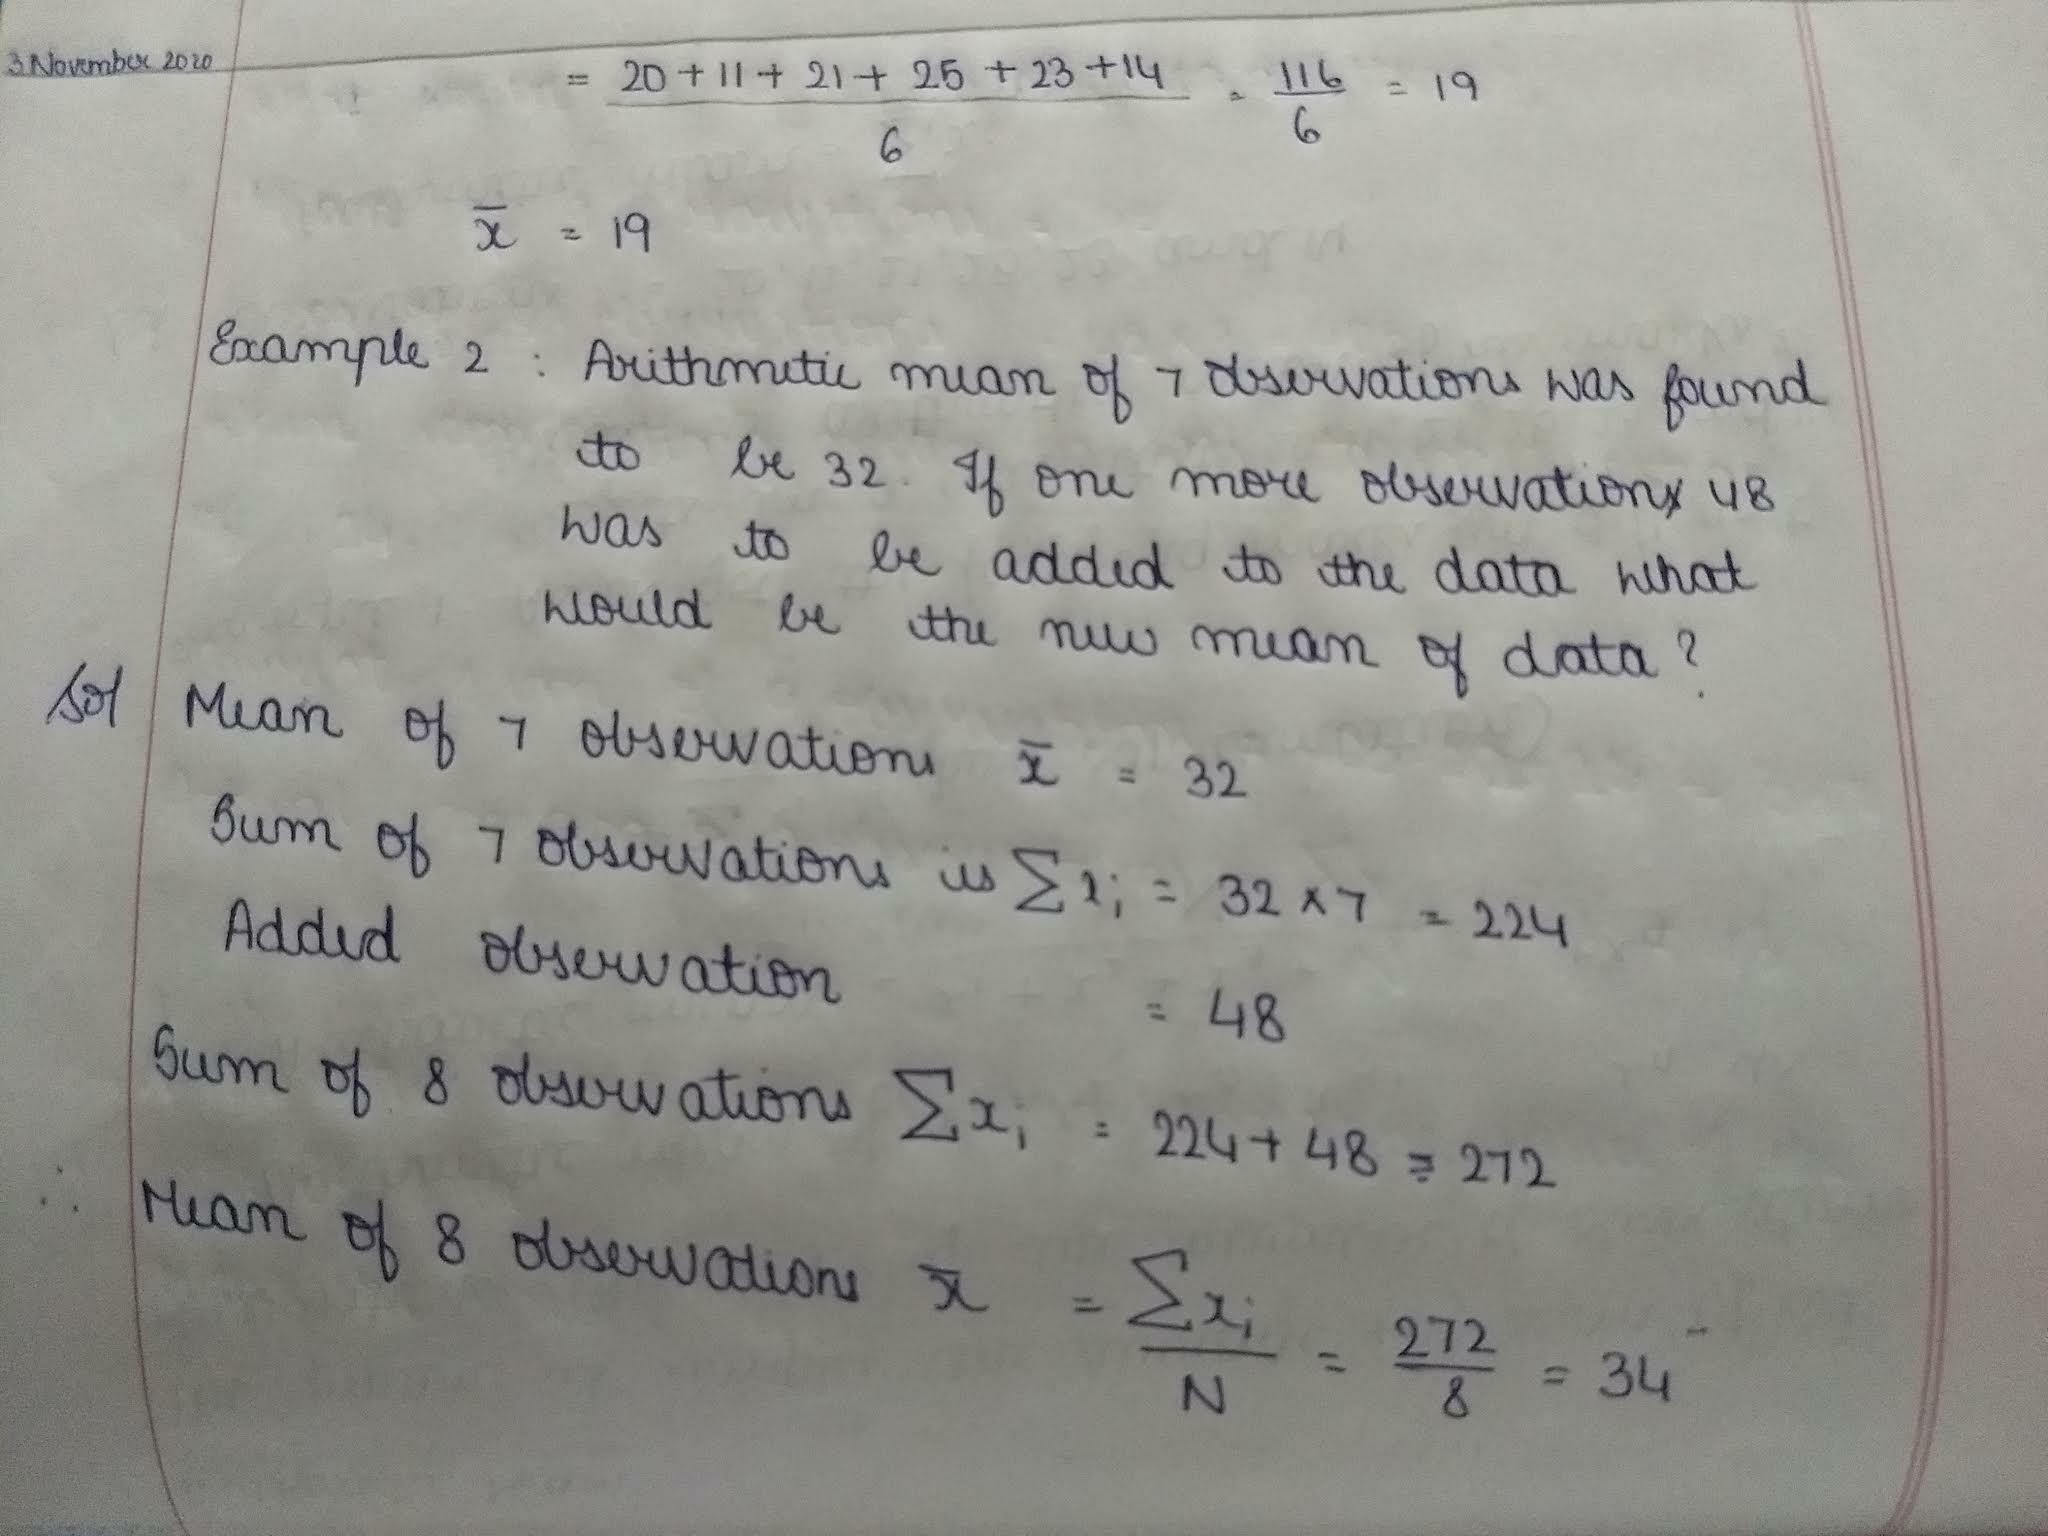 3 November 2020
= 20 + 11 + 21 + 25 + 23 + 14 / 6 = 116 / 6 = 19
x̄ = 19
Example 2 : Arithmetic mean of 7 observations was found
to be 32. If one more observation 48
was to be added to the data what
would be the new mean of data?
Sol Mean of 7 observations x̄ = 32
Sum of 7 observations is Σxi = 32 × 7 = 224
Added observation = 48
Sum of 8 observations Σxi = 224 + 48 = 272
∴ Mean of 8 observations x̄ = Σxi / N = 272 / 8 = 34